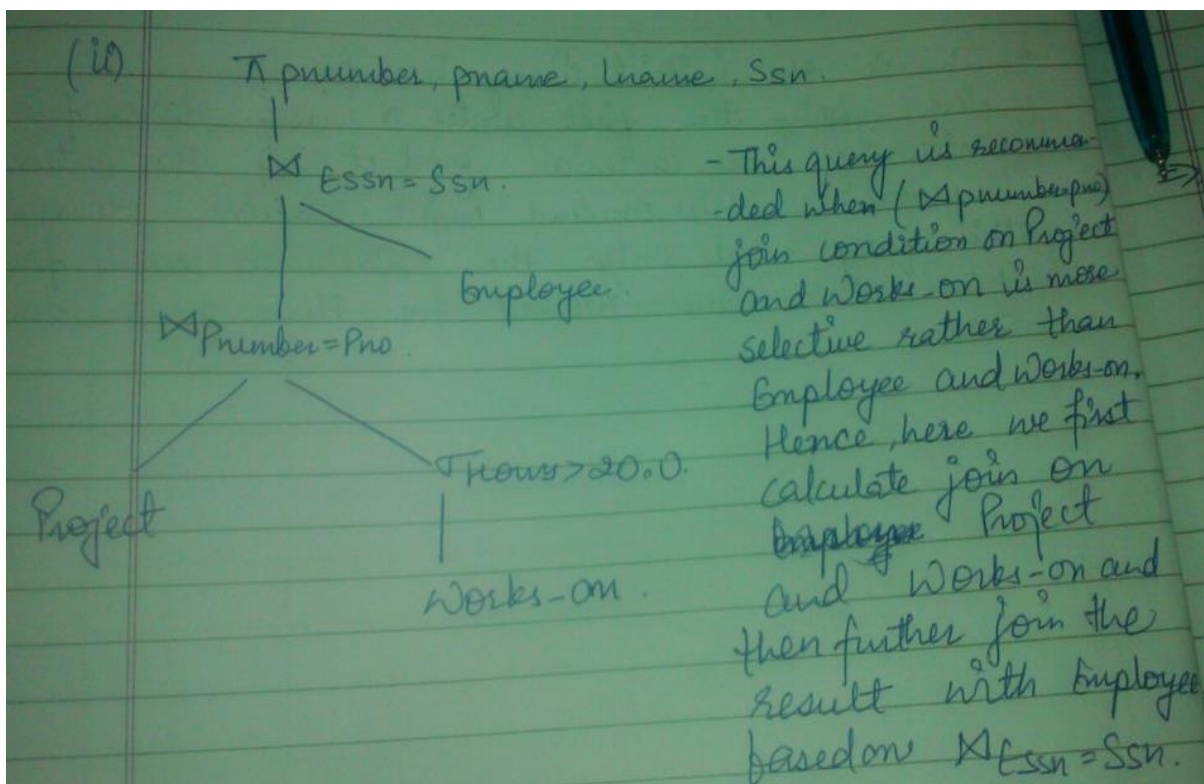 (ii) π pnumber, pname, lname, Ssn.
⋈ Essn = Ssn.
Employee.
⋈ Pnumber = Pno
Project
σ Hours > 20.0.
Works-on.
- This query is recomme-
-ded when (⋈ pnumber=pno)
join condition on Project
and Works-on is more
selective rather than
Employee and Works-on.
Hence, here we first
calculate join on
Project
and Works-on and
then further join the
result with Employee
based on ⋈ Essn = Ssn.